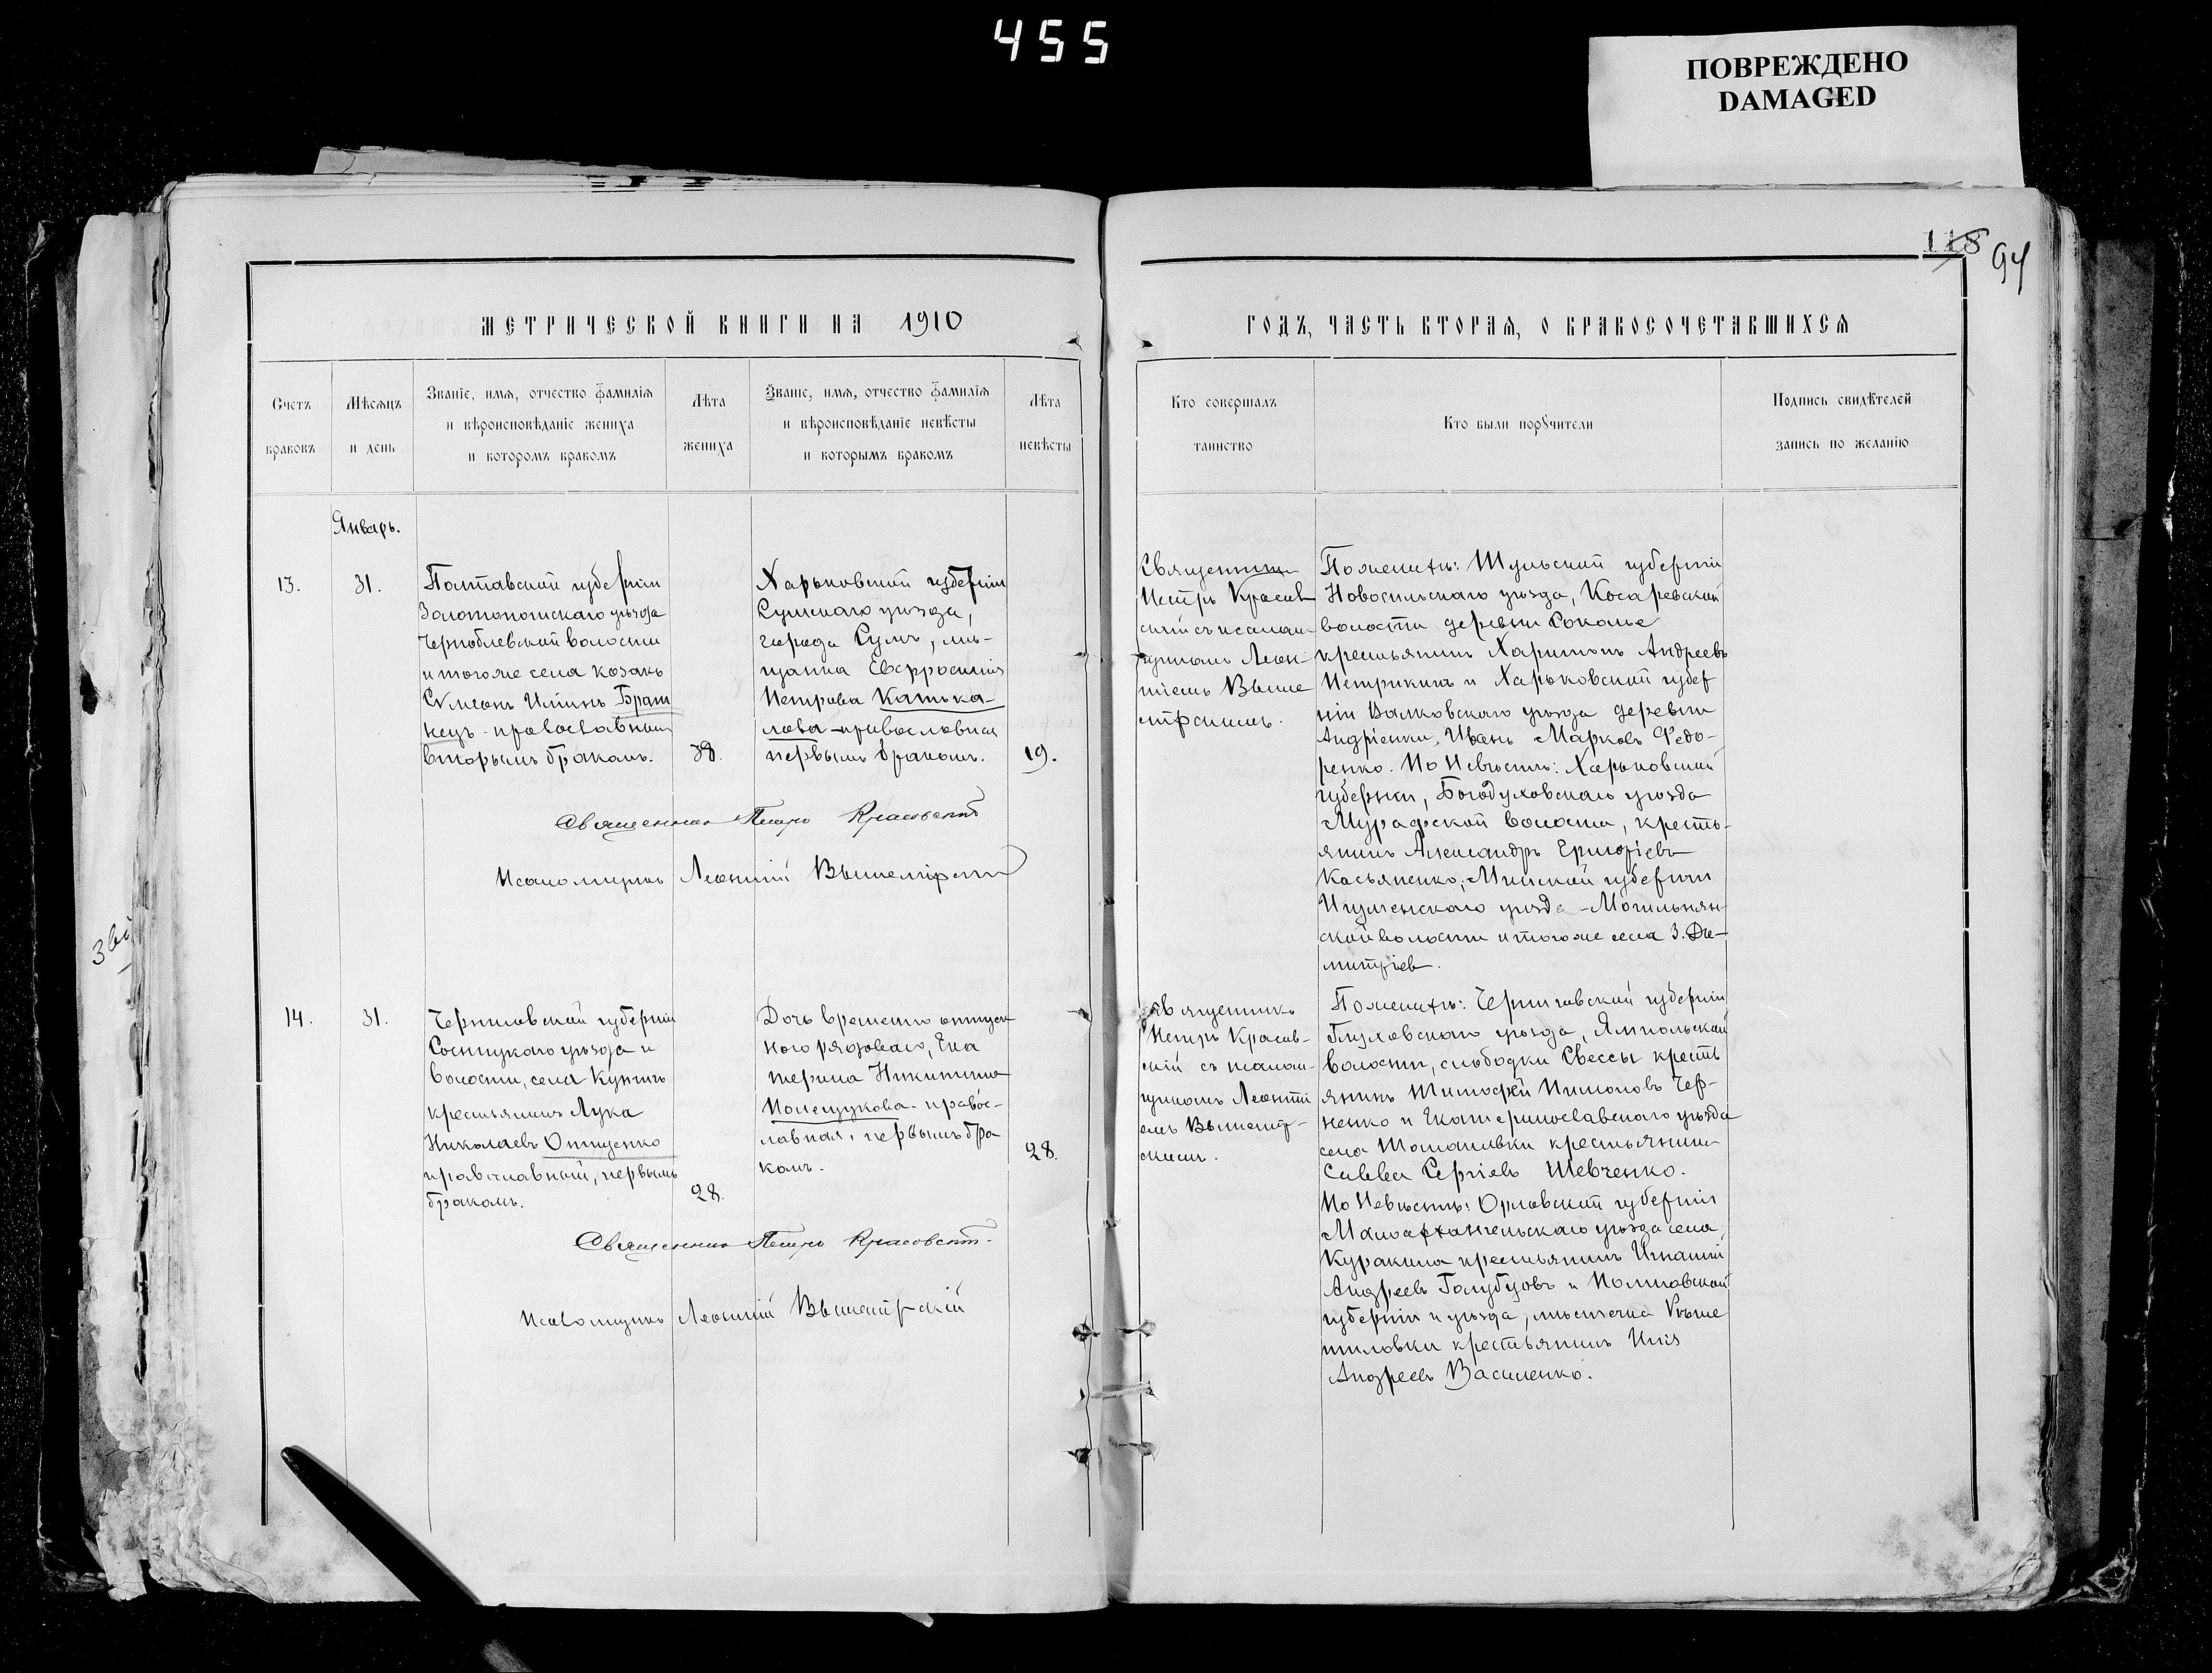 455
ПОВРЕЖДЕНО
DAMAGED
118 94
МЕТРИЧЕСКОЙ КНИГИ НА 1910
ГОДЪ, ЧАСТЬ ВТОРАЯ, О БРАКОСОЧЕТАВШИХСЯ
Счетъ
браковъ
Мѣсяцъ
и день
Званіе, имя, отчество фамилія
и вѣроисповѣданіе жениха
и которомъ бракомъ
Лѣта
жениха
Званіе, имя, отчество фамилія
и вѣроисповѣданіе невѣсты
и которымъ бракомъ
Лѣта
невѣсты
Кто совершалъ
таинство
Кто были поручители
Подпись свидѣтелей
запись по желанію
Январь.
13.
31.
Полтавской губерніи
Золотоношскаго уѣзда
волости
и того же села козакъ
Сѵмеонъ Илiинъ Брат
нецъ - православный
вторымъ бракомъ.
38.
Харьковской губерніи
Сумскаго уѣзда,
города Сумъ, мѣ-
щанка Евфросинія
Петрова Катька-
лова - православная
первымъ бракомъ.
19.
Священникъ Петръ Красовскій
Псаломщикъ Леонтій
Священникъ
Петръ Красов
скій съ псалом
щикомъ Леон-
тіемъ Выше
По женихѣ: Тульской губерніи
Новосильскаго уѣзда, Косаревской
волости деревни Соколье
крестьянинъ Харитонъ Андреевъ
Петрикинъ и Харьковской губер
ніи Валковскаго уѣзда деревни
Андріенки, Иванъ Марковъ Федо-
ренко. По Невѣстѣ: Харьковской
губерніи, Богодуховскаго уѣзда
Мурафской волости, кресть-
янинъ Александръ Григоріевъ
Касьяненко, Минской губерніи
Игуменскаго уѣзда - Могильнян-
ской волости и того же села З. Ди-
митріев.
14.
31.
Черниговской губерніи
Сосницкаго уѣзда и
волости, села Кучинъ
крестьянинъ Лука
Николаевъ Онищенко
православный, первымъ
бракомъ.
28.
Дочь временно отпуск
ного рядоваго, Ека
терина Никитина
Полещукова - правос-
лавная, первымъ бра
комъ.
28.
Священникъ Петръ Красовскій.
Псаломщикъ Леонтій
Священникъ
Петръ Красов-
скій съ псалом-
щикомъ Леонті
емъ
По женихѣ: Черниговской губерніи
Глуховскаго уѣзда, Ямпольской
волости, слободки Свессы кресть
янинъ Тимофей Пимоновъ Чер-
ненко и Екатеринославскаго уѣзда
села Томаковки крестьянинъ
Савва Сергіевъ Шевченко.
По Невѣстѣ: Орловской губерніи
Малоархангельскаго уѣзда села
Куракина крестьянинъ Игнатій
Андреевъ Голубцовъ и Полтавской
губерніи и уѣзда, мѣстечка Рѣше
тиловки крестьянинъ Илія
Андреевъ Василенко.